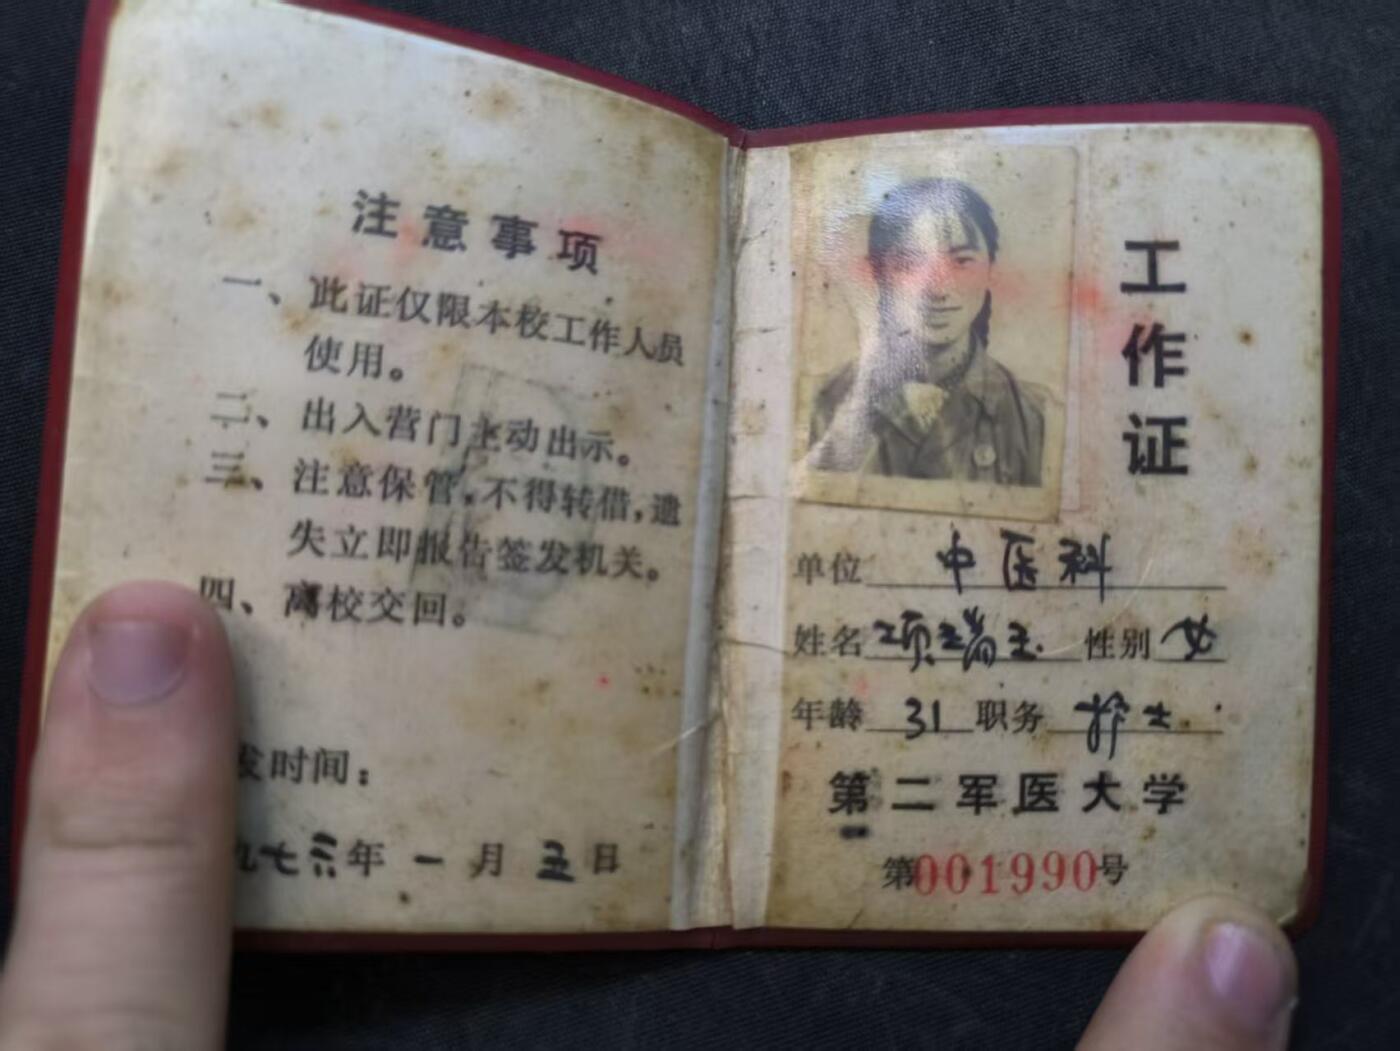 注意事项
一、此证仅限本校工作人员
使用。
二、出入营门主动出示。
三、注意保管,不得转借,遗
失立即报告签发机关。
四、离校交回。
发时间:
九七六年一月五日
工作证
单位 中医科
姓名 项瑞玉 性别 女
年龄 31 职务 护士
第二军医大学
第001990号